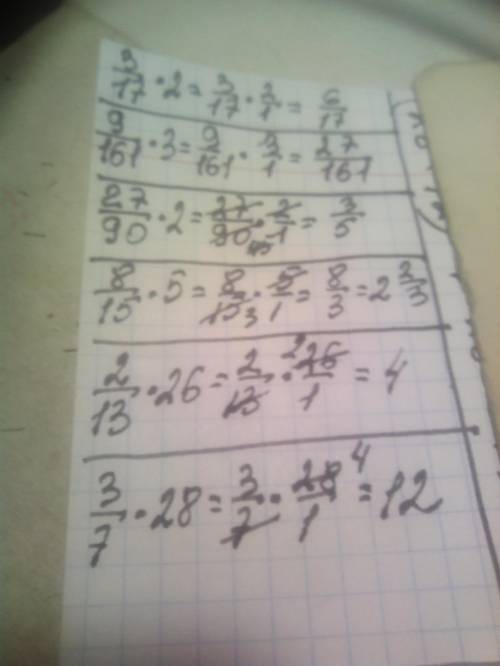 3/17 · 2 = 3/17 · 2/1 = 6/17
9/161 · 3 = 9/161 · 3/1 = 27/161
27/90 · 2 = 27/90 · 2/1 = 3/5
8/15 · 5 = 8/15 3 · 5/1 = 8/3 = 2 2/3
2/13 · 26 = 2/13 · 2 26/1 = 4
3/7 · 28 = 3/7 · 28 4/1 = 12